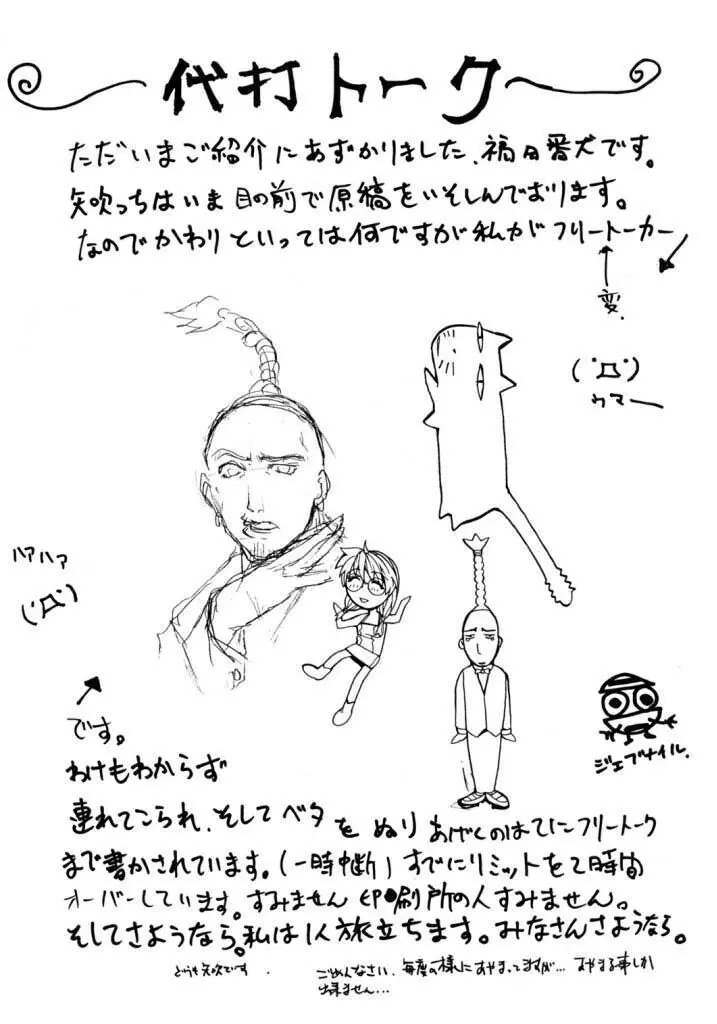 代打トーク
ただいまご紹介にあずかりました、福日番犬です。
矢吹っちはいま目の前で原稿をいそしんでおります。
なのでかわりといっては何ですが私がフリートーカー
変.
(゚Д゚)
ウマー
ハァハァ
(゚Д゚)
です。
ジェブナイル.
わけもわからず
連れてこられ、そしてベタをぬりあげくのはてにフリートーク
まで書かされています。(一時中断)すでにリミットを2時間
オーバーしています。すみません印刷所の人すみません。
そしてさようなら。私は1人旅立ちます。みなさんさようなら。
どうも矢吹です.
ごめんなさい、毎度の様にあやまってますが…あやまる事しか
出来ません…